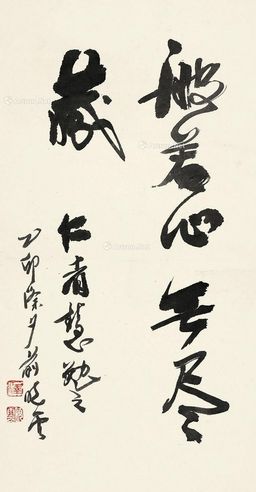 般若心无尽
藏
仁者慧勉之
乙卯除夕前晓云